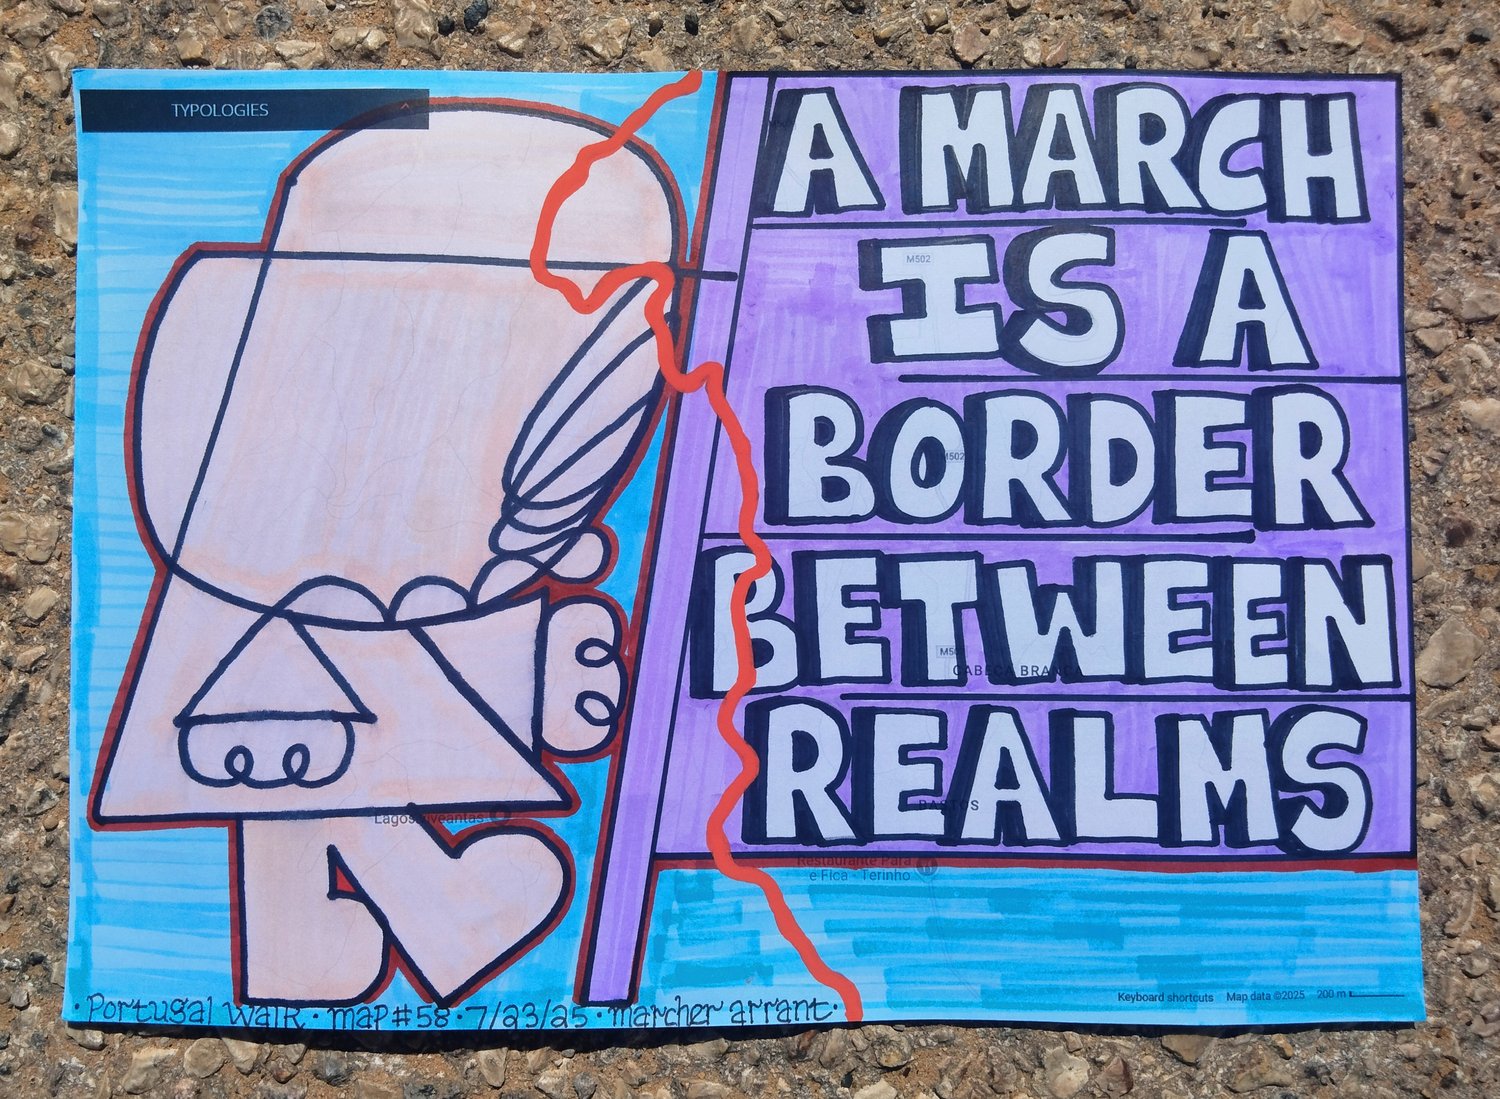 TYPOLOGIES
A MARCH
IS A
BORDER
BETWEEN
REALMS
M502
M502
M50
CABEÇA BRANCA
BASTOS
Restaurante Pará
e Fica - Terinho
Keyboard shortcuts Map data ©2025 200 m
· Portugal Walk · map #58 · 7/23/25 · marcher arrant ·